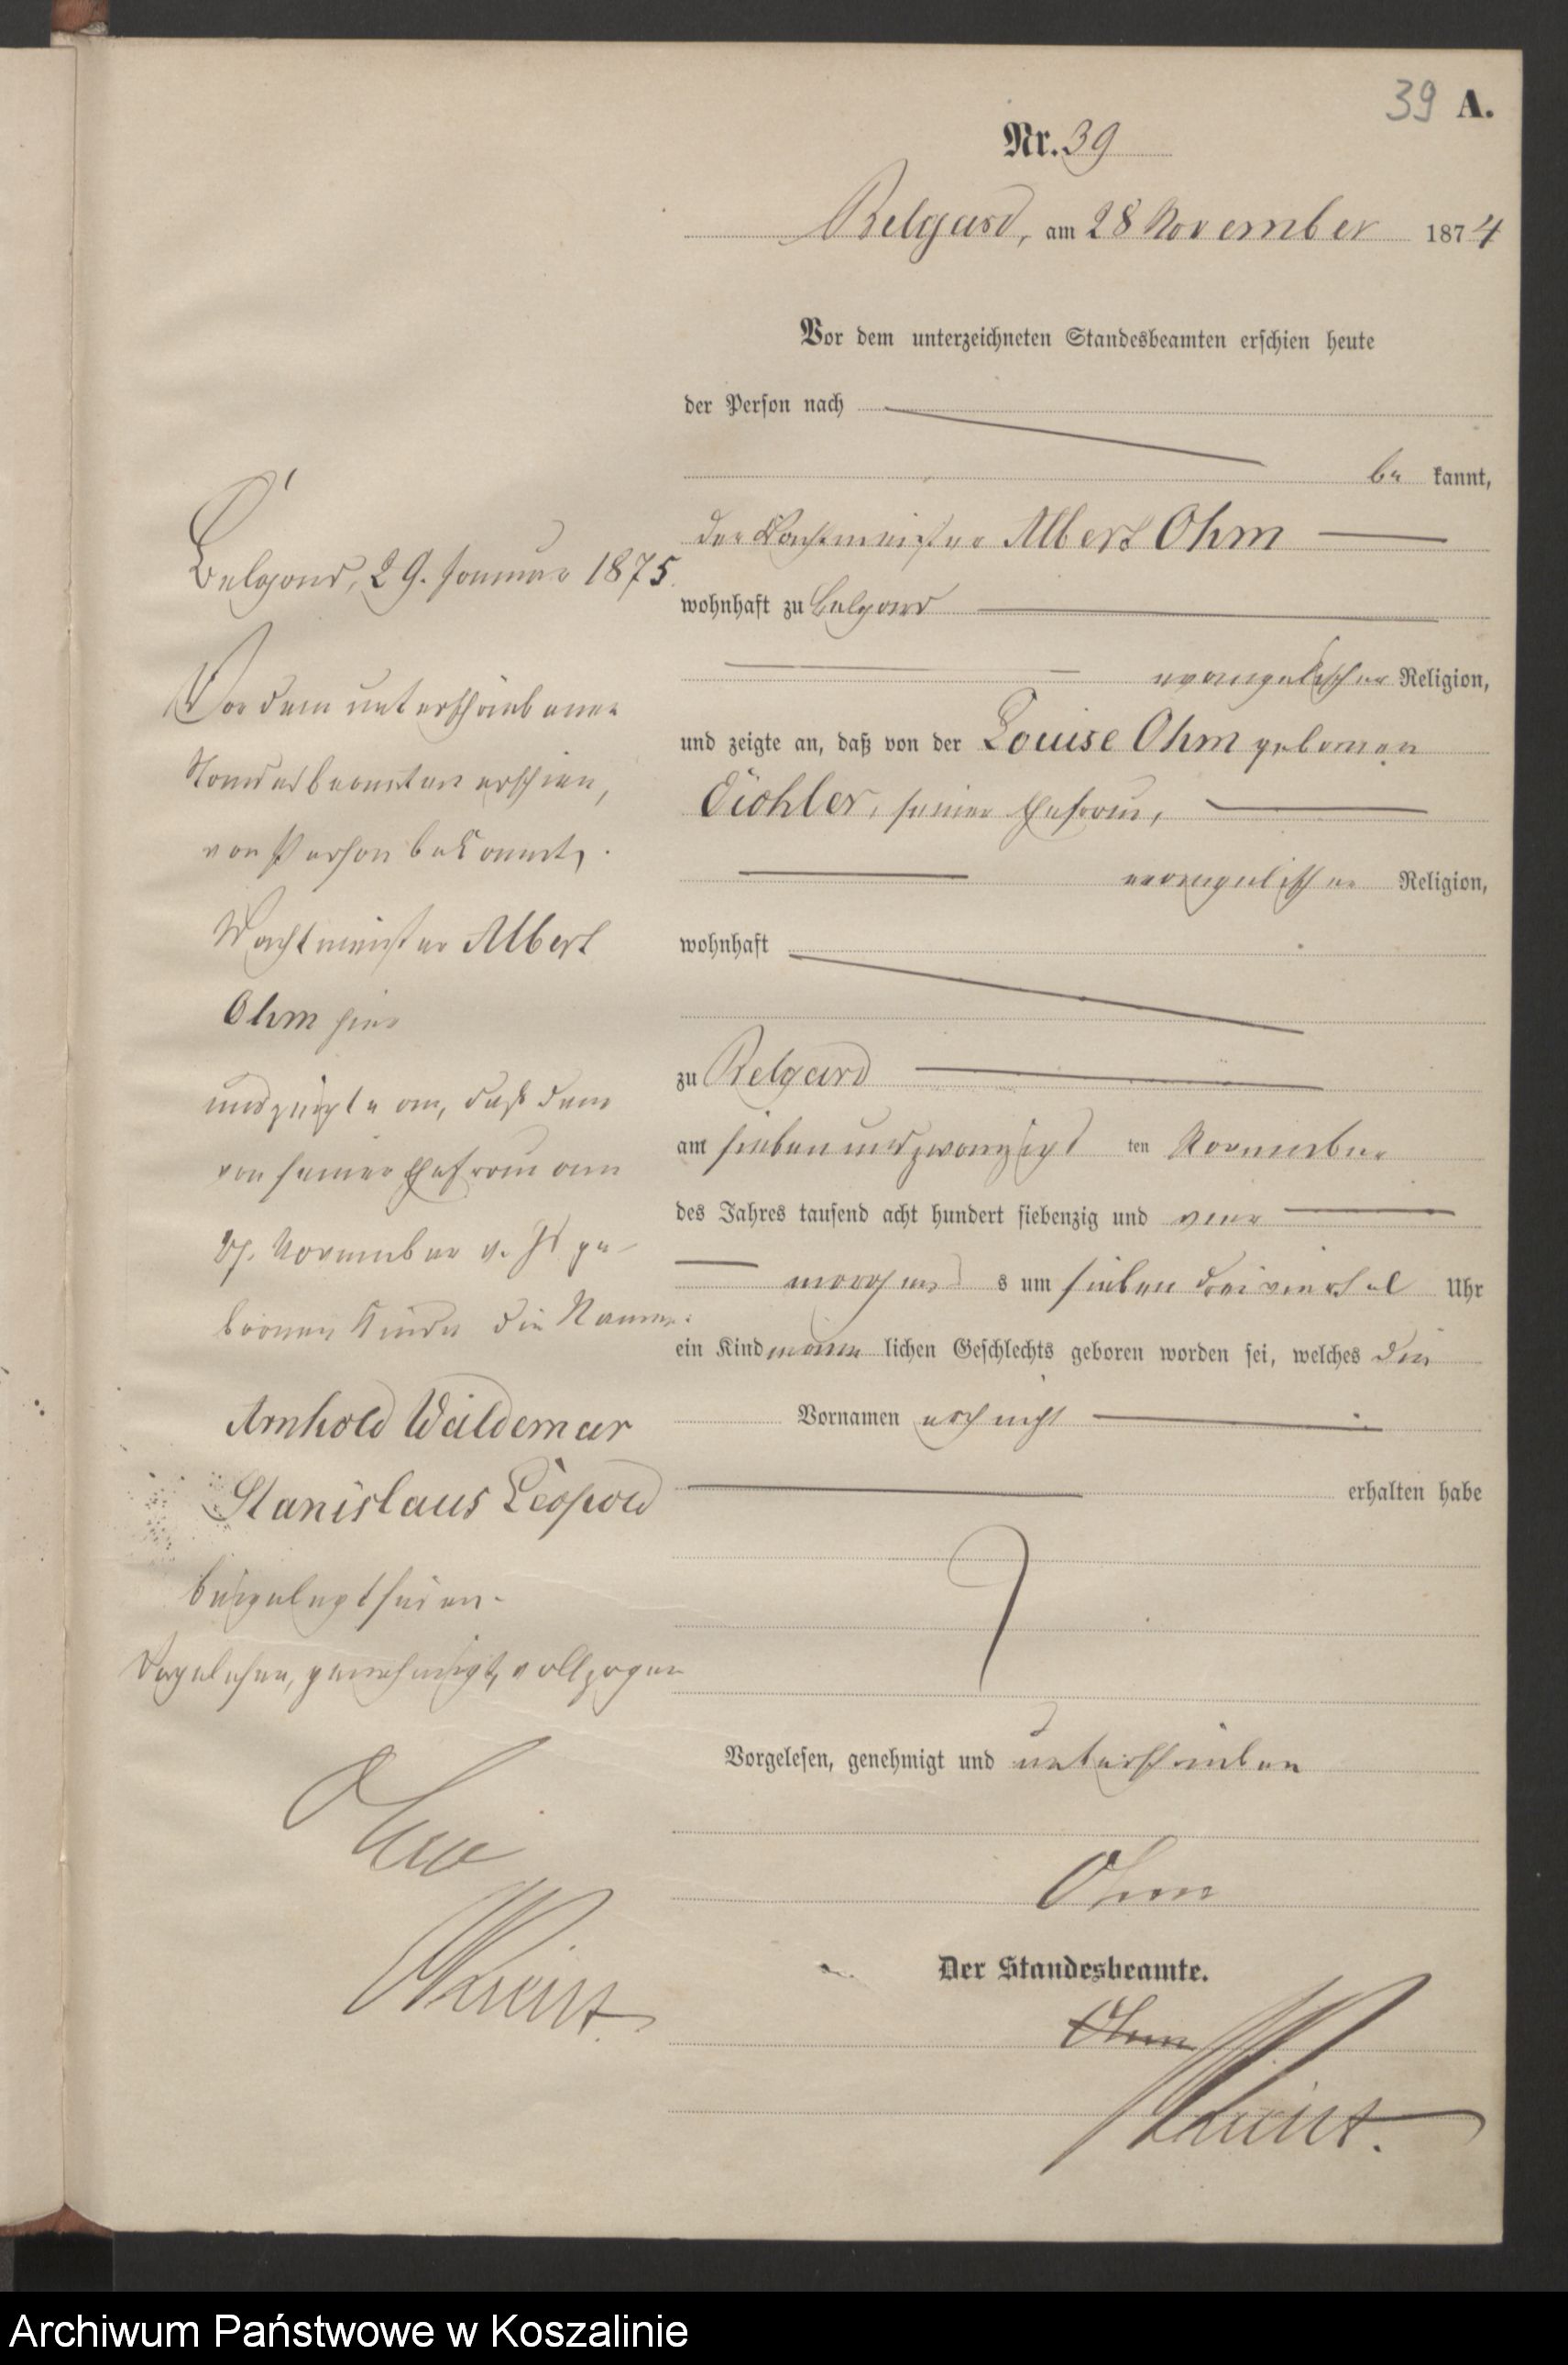 39 A.
Nr. 39
Belgard, am 28 November 1874
Vor dem unterzeichneten Standesbeamten erschien heute
der Person nach
be kannt,
der Wachtmeister Albert Ohm
wohnhaft zu Belgard
evangelischer Religion,
und zeigte an, daß von der Louise Ohm geborenen
Eichler, seiner Ehefrau,
evangelischer Religion,
wohnhaft
zu Belgard
am sieben und zwanzigst ten November
des Jahres tausend acht hundert siebenzig und vier
morgens s um sieben drei viertel Uhr
ein Kind männ lichen Geschlechts geboren worden sei, welches die
Vornamen noch nicht
erhalten habe
Vorgelesen, genehmigt und unterschrieben
Ohm
Der Standesbeamte.
Ohm
Belgard, 29. Januar 1875.
Vor dem unterschriebenen
Standesbeamten erschien,
von Person bekannt,
Wachtmeister Albert
Ohm hier
und zeigte an, daß dem
von seiner Ehefrau am
27. November v. Js ge-
borenen Kinde die Namen:
Arnhold Waldemar
Stanislaus Leopold
beigelegt seien.
Vorgelesen, genehmigt, vollzogen
Ohm
Archiwum Państwowe w Koszalinie